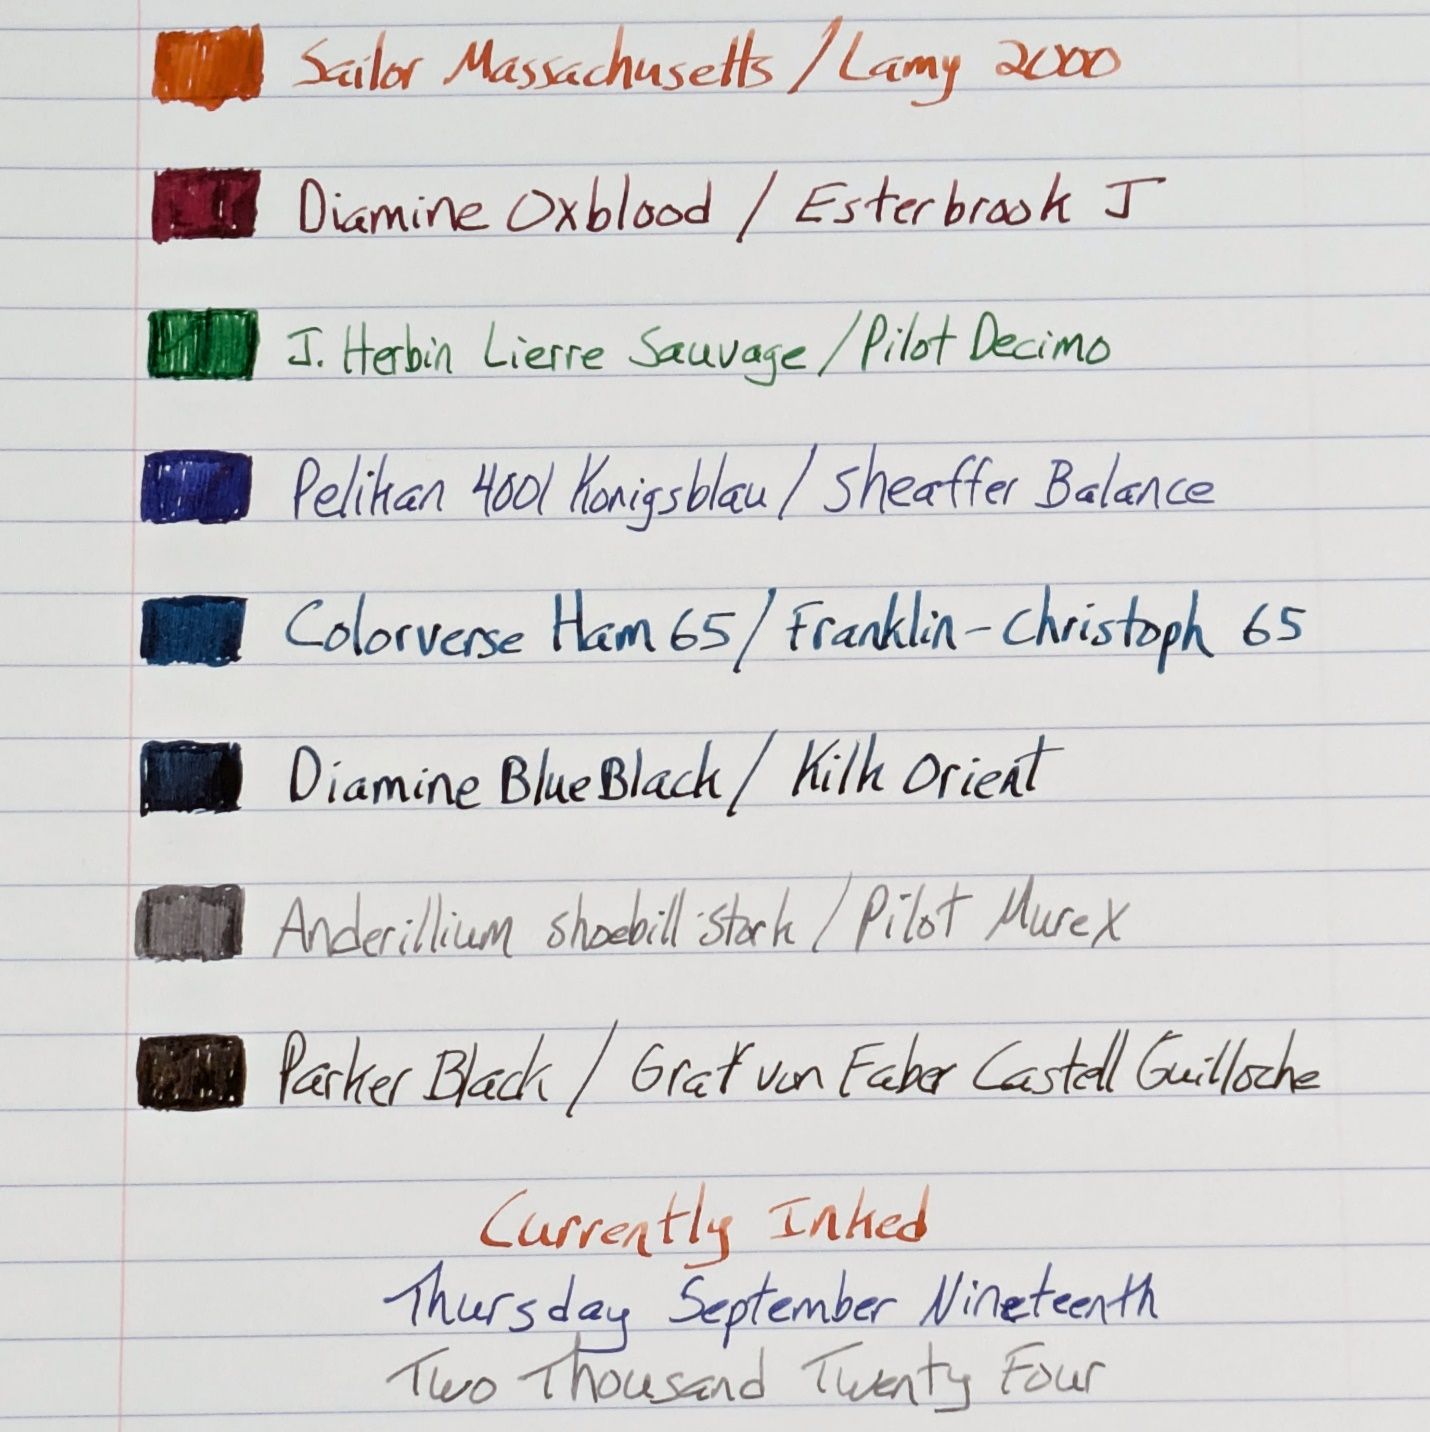 Sailor Massachusetts / Lamy 2000
Diamine Oxblood / Esterbrook J
J. Herbin Lierre Sauvage / Pilot Decimo
Pelikan 4001 Konigsblau / Sheaffer Balance
Colorverse Ham 65 / Franklin-Christoph 65
Diamine Blue Black / Kilk Orient
Anderillium Shoebill Stork / Pilot Murex
Parker Black / Graf von Faber Castell Guilloche
Currently Inked
Thursday September Nineteenth
Two Thousand Twenty Four